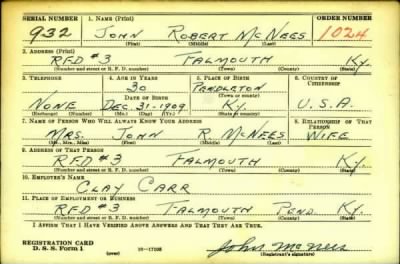 SERIAL NUMBER 1. NAME (Print) ORDER NUMBER
932 JOHN ROBERT McNEES 1024
(First) (Middle) (Last)
2. ADDRESS (Print)
RFD #3 FALMOUTH KY.
(Number and street or R. F. D. number) (Town) (County) (State)
3. TELEPHONE 4. AGE IN YEARS 5. PLACE OF BIRTH 6. COUNTRY OF CITIZENSHIP
30 PENDLETON
DATE OF BIRTH (Town or county)
NONE DEC. 31-1909 KY. U.S.A.
(Exchange) (Number) (Mo.) (Day) (Yr.) (State or country)
7. NAME OF PERSON WHO WILL ALWAYS KNOW YOUR ADDRESS 8. RELATIONSHIP OF THAT PERSON
MRS. JOHN R. McNEES WIFE
(Mr., Mrs., Miss) (First) (Middle) (Last)
9. ADDRESS OF THAT PERSON
RFD #3 FALMOUTH KY.
(Number and street or R. F. D. number) (Town) (County) (State)
10. EMPLOYER'S NAME
CLAY CARR
11. PLACE OF EMPLOYMENT OR BUSINESS
RFD #3 FALMOUTH PEND KY.
(Number and street or R. F. D. number) (Town) (County) (State)
I AFFIRM THAT I HAVE VERIFIED ABOVE ANSWERS AND THAT THEY ARE TRUE.
REGISTRATION CARD
D. S. S. Form 1 (over) 16—17105 John McNees
(Registrant's signature)